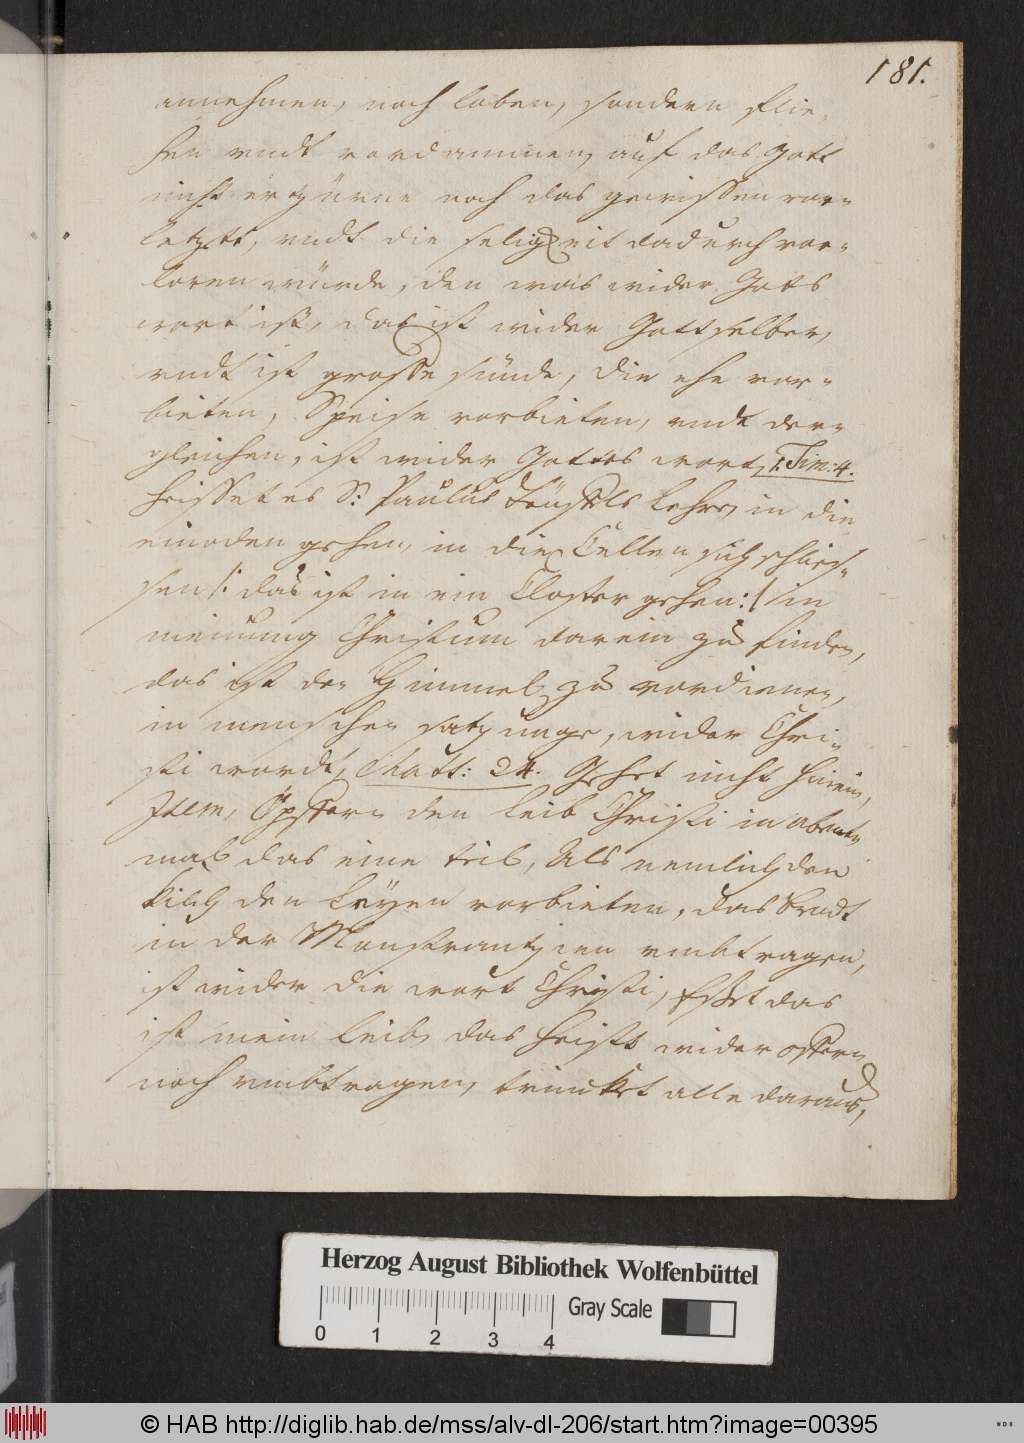 181.
annehmen, noch loben, sondern flie,
hen undt vordammen, auf das Gott
nicht erzürne noch das gewissen vor-
letzte, undt die seligkeit dadurch vor-
loren würde, den was wider Gots
wort ist, das ist wider Gott selber,
undt ist grosse sünde, die ehe vor-
bieten, Speise vorbieten, undt der-
gleichen, ist wider Gottes wort, 1. Tim: 4.
heisset es S: Paulus Teüffels Lehre, in die
einoden gehen, in die Cellen sich schlies-
sen /: das ist in ein Closter gehen :/ in
meinung Christum darein zu finden,
das ist den Himmel zu vordienen,
in menschen satzunge, wider Chri-
sti wordt, Matt: 24. Gehet nicht hinein,
Item, Opffern den leib Christi in abent
mal das eine teil, Als nemlich den
Kilch den Leyen vorbieten, das brodt
in der Monstrantzien umbtragen,
ist wider die wort Christi, Esset das
ist mein leib, das heist wider opffern
noch umbtragen, trincket alle daraus,
Herzog August Bibliothek Wolfenbüttel
0 1 2 3 4
Gray Scale
© HAB http://diglib.hab.de/mss/alv-dl-206/start.htm?image=00395